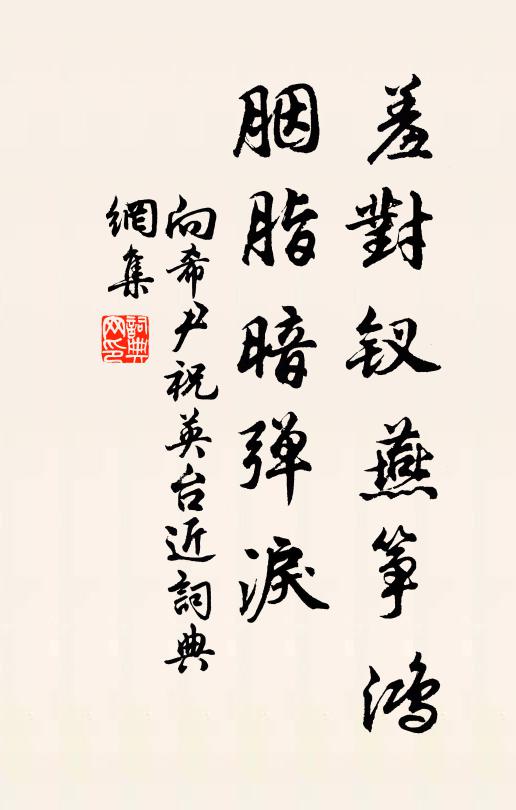 羞對釵燕筝鴻
胭脂暗弹淚
向希尹祝英台近詞典
網集
詞典
网印